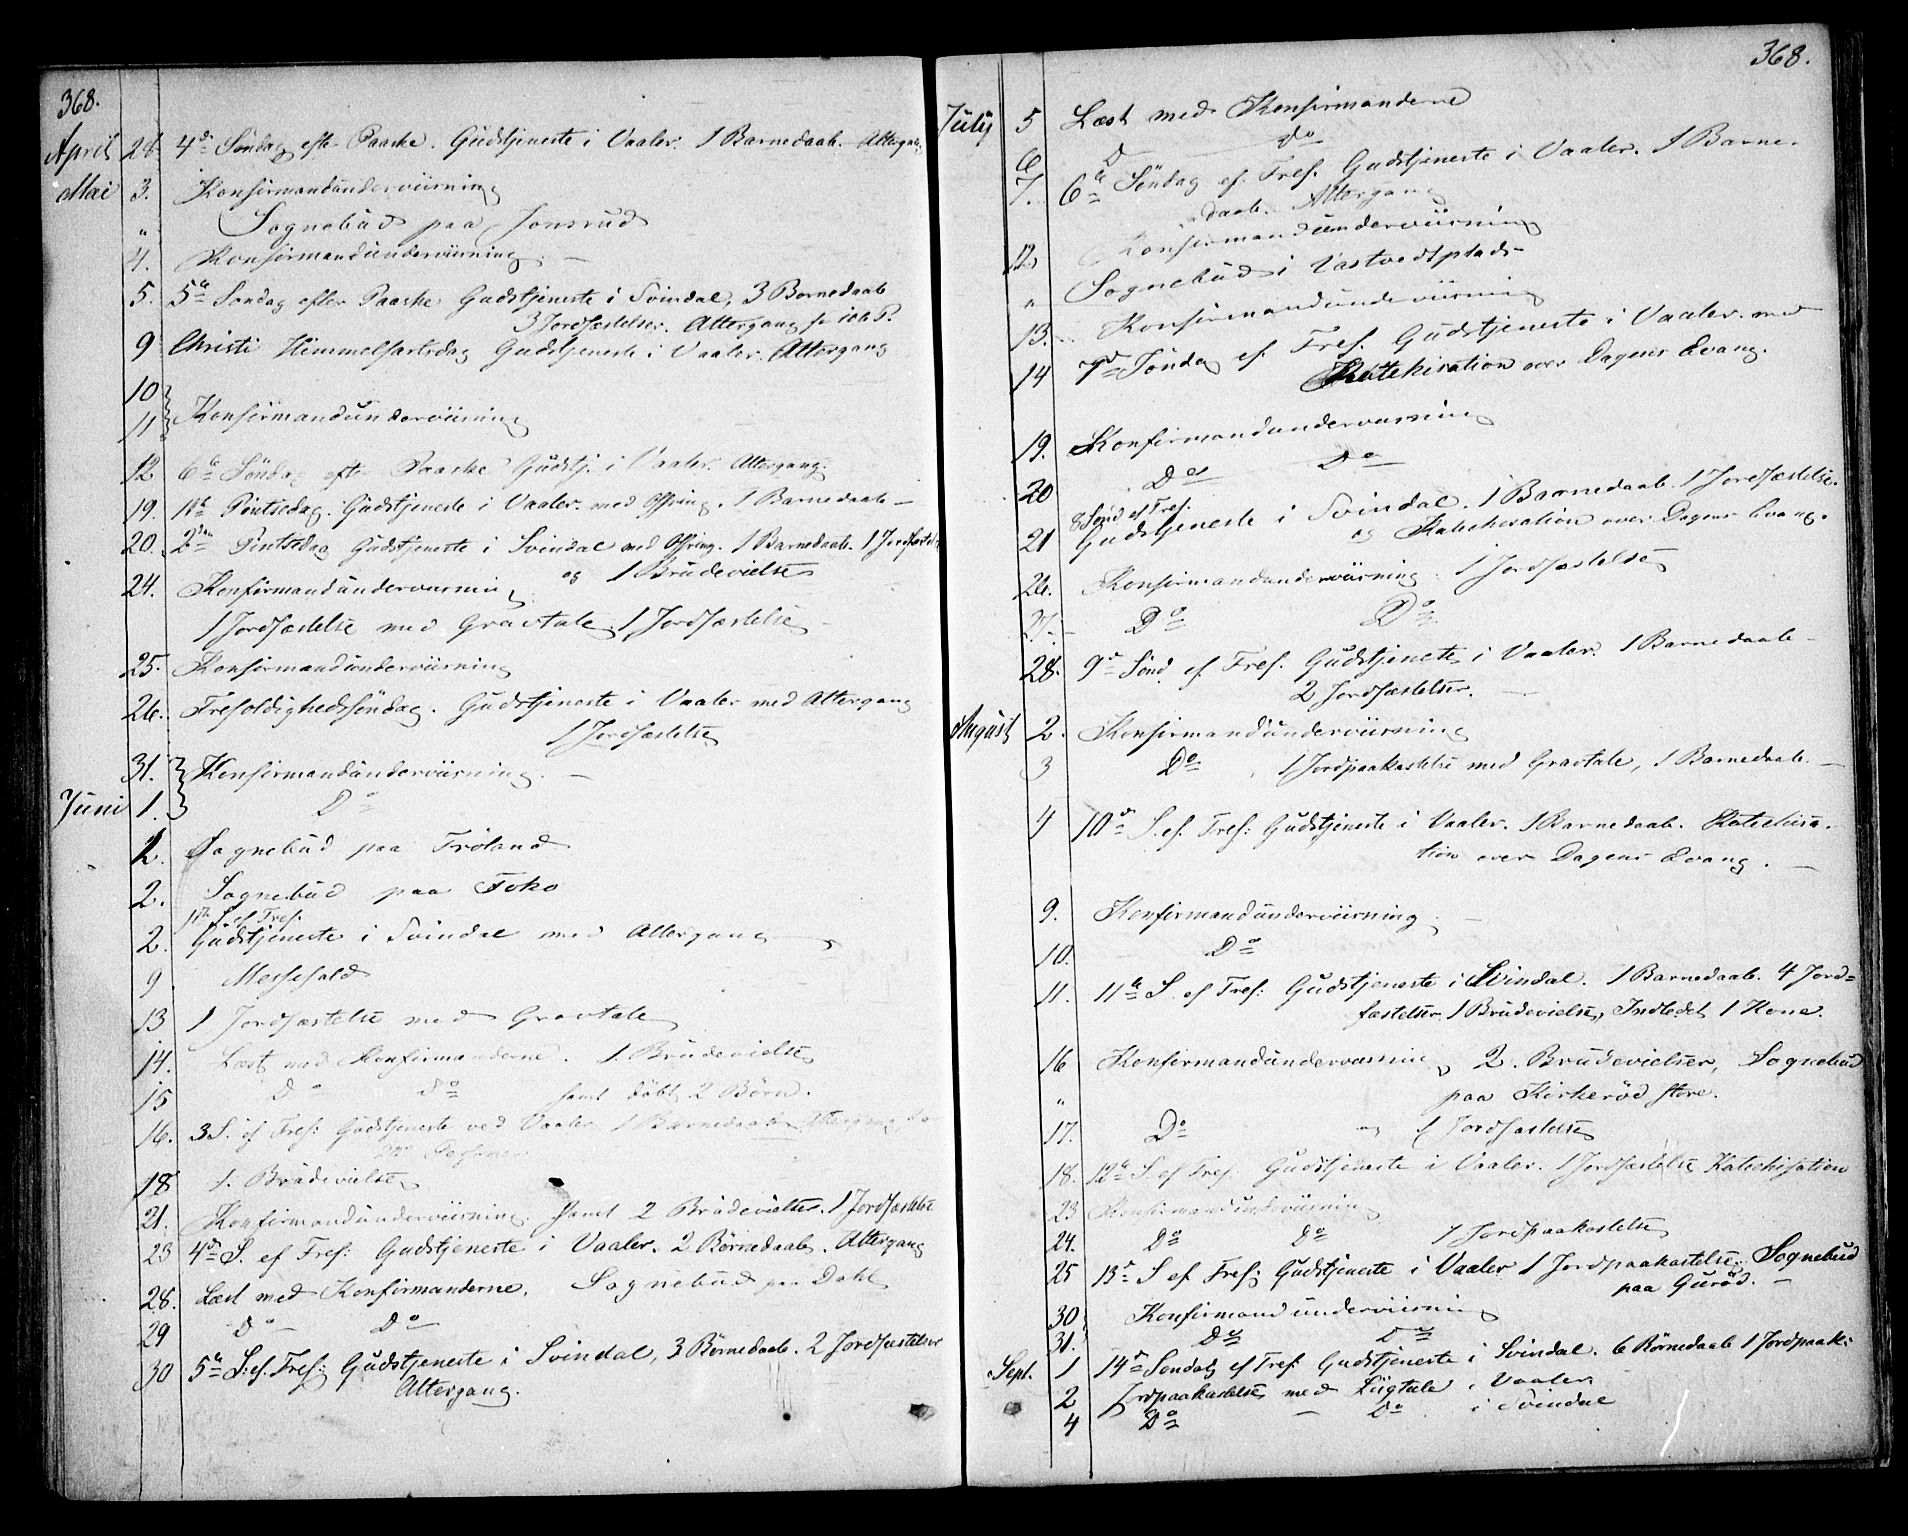 368.
April 28. 4de Søndag eft. Paaske. Gudstjeneste i Vaaler. 1 Barnedaab. Altergang.
Mai 3. Konfirmandunderviisning
" Sognebud paa Jonsrud
4. Konfirmandunderviisning. —
5. 5te Søndag efter Paaske Gudstjeneste i Svindal, 3 Børnedaab
3 Jordfæstelser. Altergang
9 Christi Himmelfartsdag Gudstjeneste i Vaaler. Altergang
10
11 Konfirmandunderviisning
12 6te Søndag eft. Paaske Gudstj. i Vaaler. Altergang.
19. 1ste Pintsedag. Gudstjeneste i Vaaler. med Offring. 1 Barnedaab —
20. 2den Pintsedag Gudstjeneste i Svindal med Offring. 1 Barnedaab. 1 Jordfæstelse
og 1 Brudevielse
24. Konfirmandunderviisning
1 Jordfæstelse med Gravtale. 1 Jordfæstelse
25. Konfirmandunderviisning
26. Trefoldighedssøndag. Gudstjeneste i Vaaler med Altergang
1 Jordfæstelse
31. Konfirmandunderviisning. —
Juni 1. Do
2. Sognebud paa Frøland
2. Sognebud paa Foko
1ste S. ef Tref.
2. Gudstjeneste i Svindal med Altergang
9 Messefald
13 1 Jordfæstelse med Gravtale
14. Læst med Konfirmanderne. 1. Brudevielse
15 Do Do samt døbt 2 Børn.
16. 3 S. ef Tref: Gudstjeneste ved Vaaler 1 Barnedaab Altergang
18 1. Brudevielse
21. Konfirmandunderviisning. samt 2 Brudevielser. 1 Jordfæstelse
23 4de S. ef Tref: Gudstjeneste i Vaaler. 2 Børnedaab. Altergang
28. Læst med Konfirmanderne. Sognebud paa Dahl
29 Do Do
30 5te S. ef. Tref: Gudstjeneste i Svindal, 3 Børnedaab. 2 Jordfæstelser
Altergang.
368.
July 5 Læst med Konfirmanderne
6 D Do
7. 6te Søndag ef. Tref. Gudstjeneste i Vaaler. 1 Barne-
daab. Altergang
12. Konfirmandunderviisning
" Sognebud i Vastvedtplads
13. Konfirmandunderviisning
14 7de Søndag ef. Tref. Gudstjeneste i Vaaler. med
Katekisation over Dagens Evang.
19. Konfirmandunderviisning
20 Do Do
8 Sønd ef Tref.
21 Gudstjeneste i Svindal. 1 Barnedaab. 1 Jordfæstelse.
og Katekisation over Dagens Evang.
26. Konfirmandunderviisning. 1 Jordfæstelse
27. Do Do
28. 9de Sønd ef. Tref. Gudstjeneste i Vaaler. 1 Barnedaab —
2 Jordfæstelser. —
August 2. Konfirmandunderviisning
3 Do 1 Jordpaakastelse med Gravtale, 1 Barnedaab. —
4 10de S. ef. Tref: Gudstjeneste i Vaaler. 1 Barnedaab. Katechisa-
tion over Dagens Evang. —
9. Konfirmandunderviisning. —
10. Do
11. 11te S. ef Tref: Gudstjeneste i Svindal. 1 Barnedaab. 4 Jord=
fæstelser. 1 Brudevielse, Indledet 1 Kone.
16 Konfirmandunderviisning 2. Brudevielser, Sognebud
" paa Kirkerød store.
17. Do og 1 Jordfæstelse
18. 12te S. ef Tref. Gudstjeneste i Vaaler. 1 Jordfæstelse Katechisation
23 Konfirmandunderviisning
24. Do Do 1 Jordpaakastelse
25 13de S. ef. Tref: Gudstjeneste i Vaaler 1 Jordpaakastelse. Sognebud
paa Gurød. —
30 Konfirmandunderviisning
31. Do Do
Sept. 1 14de Søndag ef Tref: Gudstjeneste i Svindal. 6 Børnedaab 1 Jordpaak:
2 Jordpaakastelse med Liigtale i Vaaler
4 Do — Do i Svindal